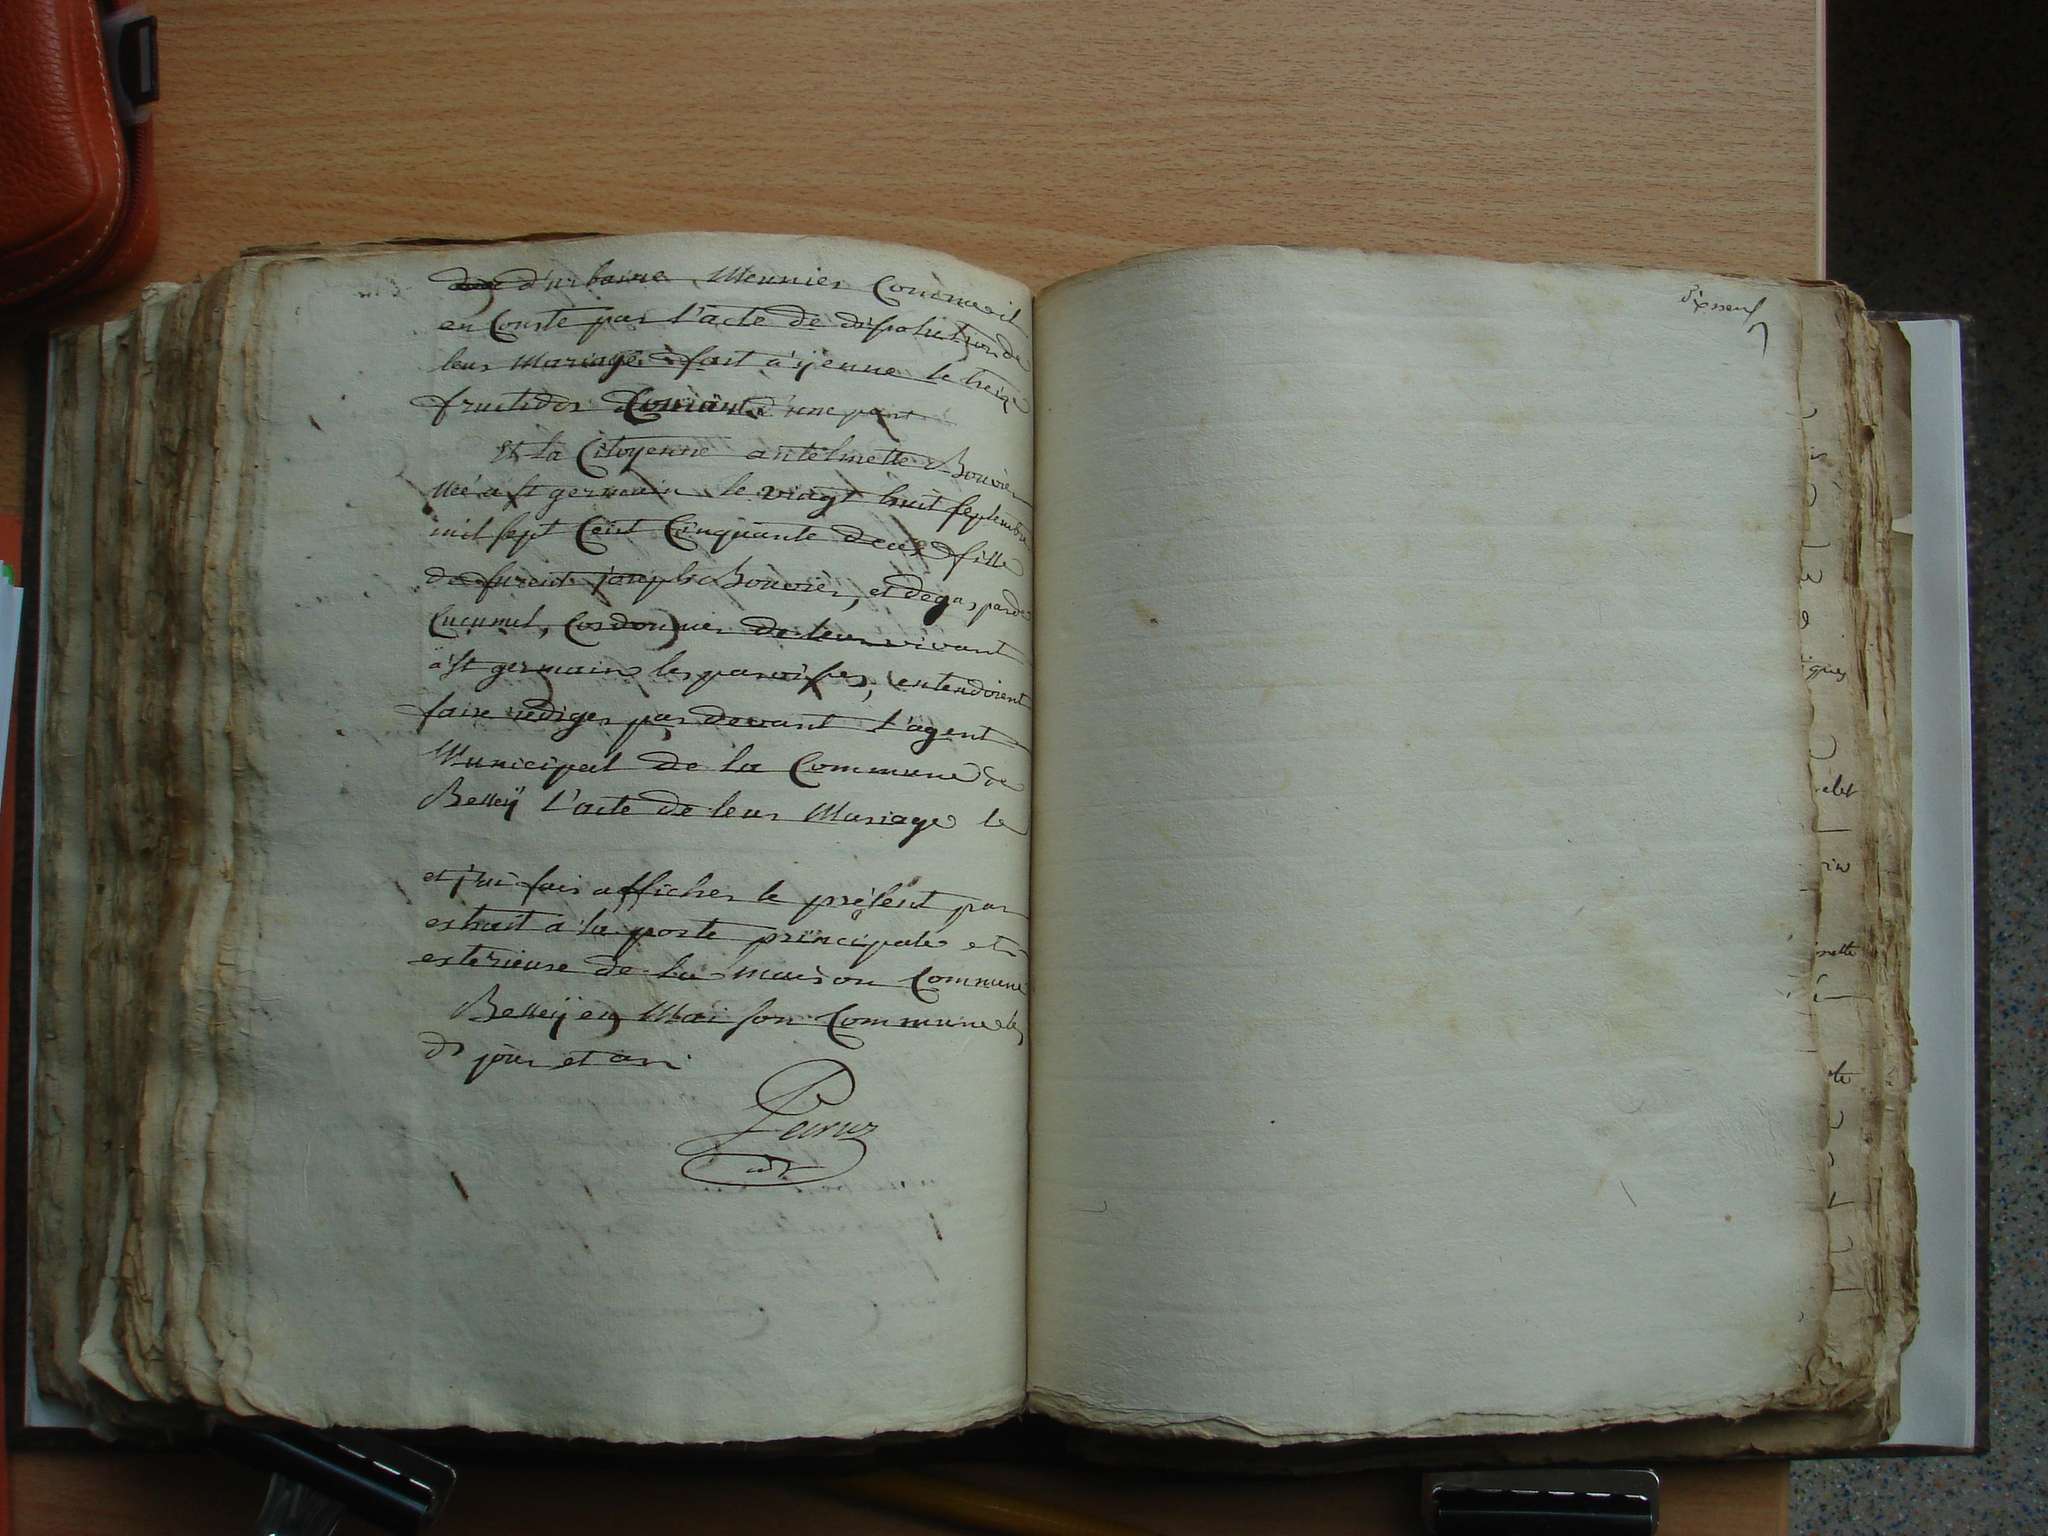 d'urbaine Meunier Comme il
en Conste par l'acte de dissolution de
leur Mariage fait a ÿenne le treize
fructidor Courant d'une part
Et la Citoyenne antelmette Bouvier
Née a st germain le vingt huit septembre
mil sept Cent Cinquante deux fille
de furent joseph Bouvier, et de gasparde
Cucumel, Cordonnier de leur vivant
a st germain les paroisses, entendoient
faire rediger par devant l'agent
Municipal de la Commune de
Belleÿ l'acte de leur Mariage le
et j'ai fais afficher le présent par
extrait a la porte principale et
exterieure de la maison Commune
Belleÿ en Maison Commune les
ds jour et an
Peÿsuz
adt
dixneuf